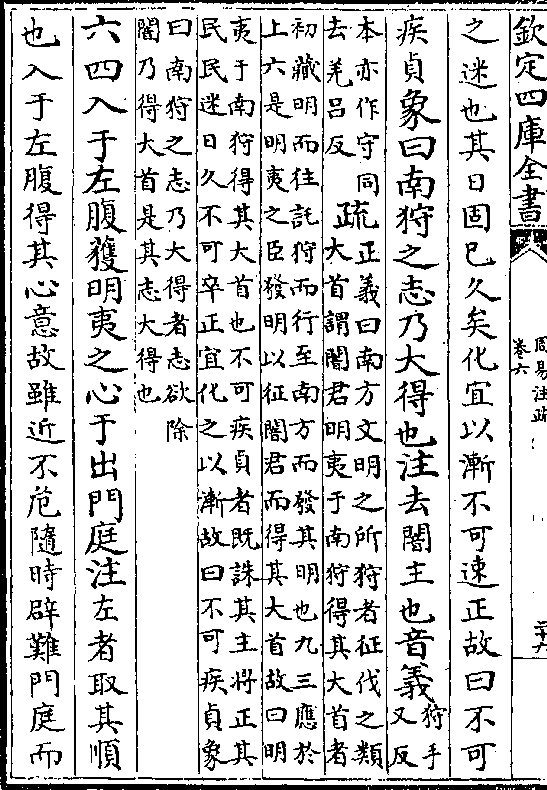 欽定四庫全書
周易注疏
卷六
二十六
之迷也其日固已久矣化宜以漸不可速正故曰不可
疾貞象曰南狩之志乃大得也注去闇主也音義
狩手
又反
本亦作守同
去羌呂反
疏
正義曰南方文明之所狩者征伐之類
大首謂闇君明夷于南狩得其大首者
初藏明而往託狩而行至南方而發其明也九三應於
上六是明夷之臣發明以征闇君而得其大首故曰明
夷于南狩得其大首也不可疾貞者既誅其主將正其
民民迷日久不可卒正宜化之以漸故曰不可疾貞象
曰南狩之志乃大得者志欲除
闇乃得大首是其志大得也
六四入于左腹獲明夷之心于出門庭注左者取其順
也入于左腹得其心意故雖近不危隨時辟難門庭而